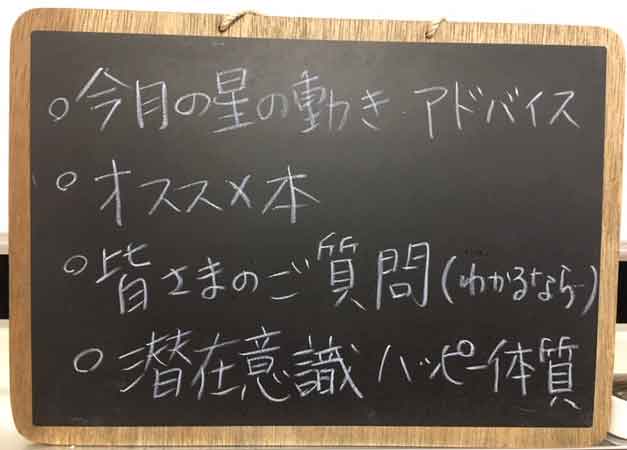 ○今月の星の動き アドバイス
○オススメ本
○皆さまのご質問(わかるなら)
○潜在意識 ハッピー体質